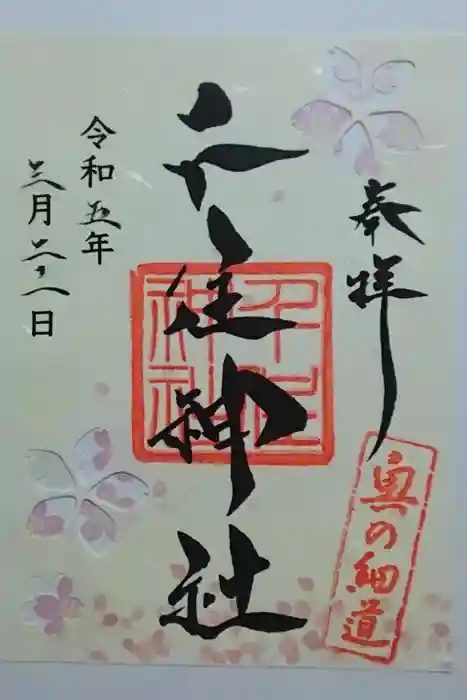 奉拝
奥の細道
千住神社
千住神社
令和五年
三月二十八日